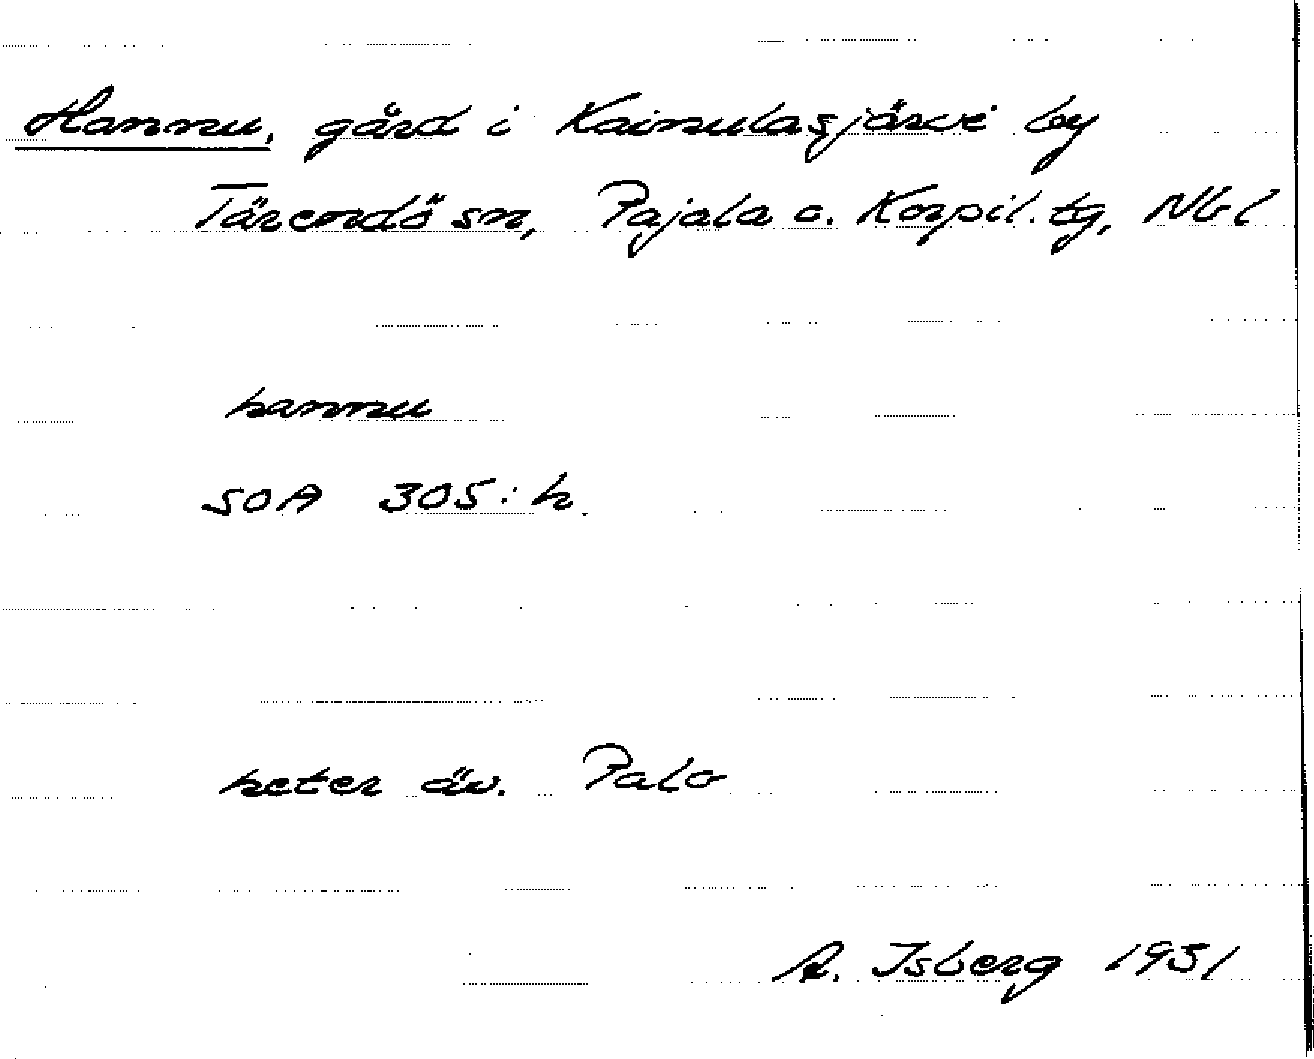 Hannu, gård i Kainulasjärvi by
Tärendö sn, Pajala o. Korpil. tg, Nbl
hannu
SOA 305:h
heter äv. Palo
A. Isberg 1931